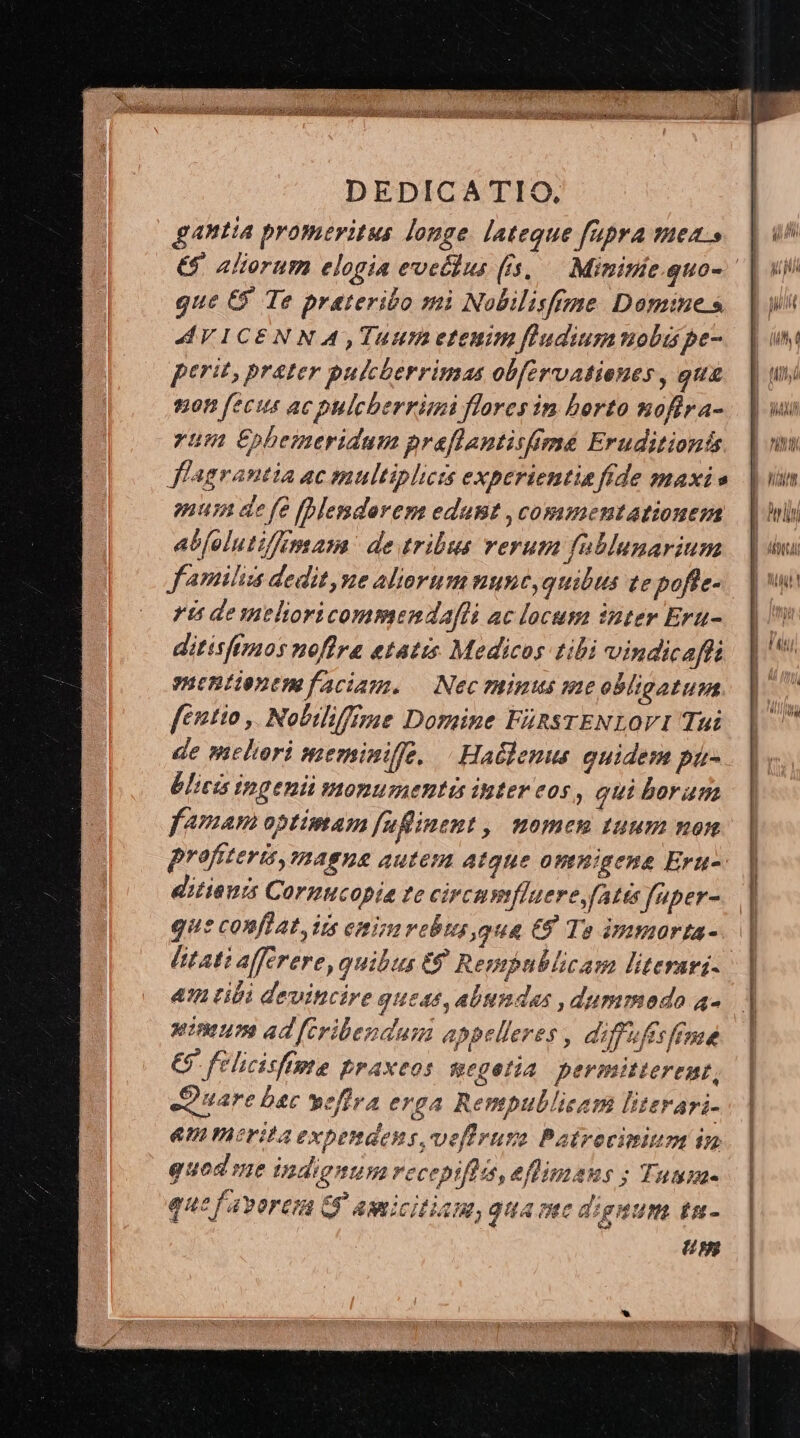 DEDICATIO.
gantia promeritus longe lateque ſupra meas
& aliorum elogia evectus ſis. Minimè quo-
que & Te præteribo mi Nobilisſime Domine
AVICENNA, Tuum etenim ſtudium nobis pe-
perit, præter pulcherrimas obſervationes, quæ
non ſecus ac pulcherrimi flores in horto noſtra-
rum Ephemeridum præſtantisſimæ Eruditionis
flagrantia ac multiplicis experientiæ fide maxi-
mum de ſe ſplendorem edunt, commentationem
abſolutiſſimam de tribus rerum ſublunarium
familiis dedit, ne aliorum nunc, quibus te poſte-
ris de meliori commendaſti ac locum inter Eru-
ditisſimos noſtræ ætatis Medicos tibi vindicaſti
mentionem faciam. Nec minus me obligatum
ſentio, Nobiliſſime Domine FÜRSTENLOVI Tui
de meliori meminiſſe. Hactenus quidem pu-
blicis ingenii monumentis inter eos, qui horum
famam optimam ſuſtinent, nomen tuum non
profiteris, magnæ autem atque omnigenæ Eru-
ditionis Cornucopiæ te circumfluere, ſatis ſuper-
que conſtat, iis enim rebus, quæ & Te immorta-
litati aſſerere, quibus & Rempublicam literari-
am tibi devincire queas, abundas, dummodo a-
nimum ad ſcribendum appelleres, diffuſisſimæ
& felicisſimæ praxeos negotia permitterent.
Quare hæc veſtra erga Rempublicam literari-
am merita expendens, veſtrum Patrocinium in
quod me indignum recepiſtis, æſtimans; Tuum-
que favorem & amicitiam, qua me dignum tu-
um